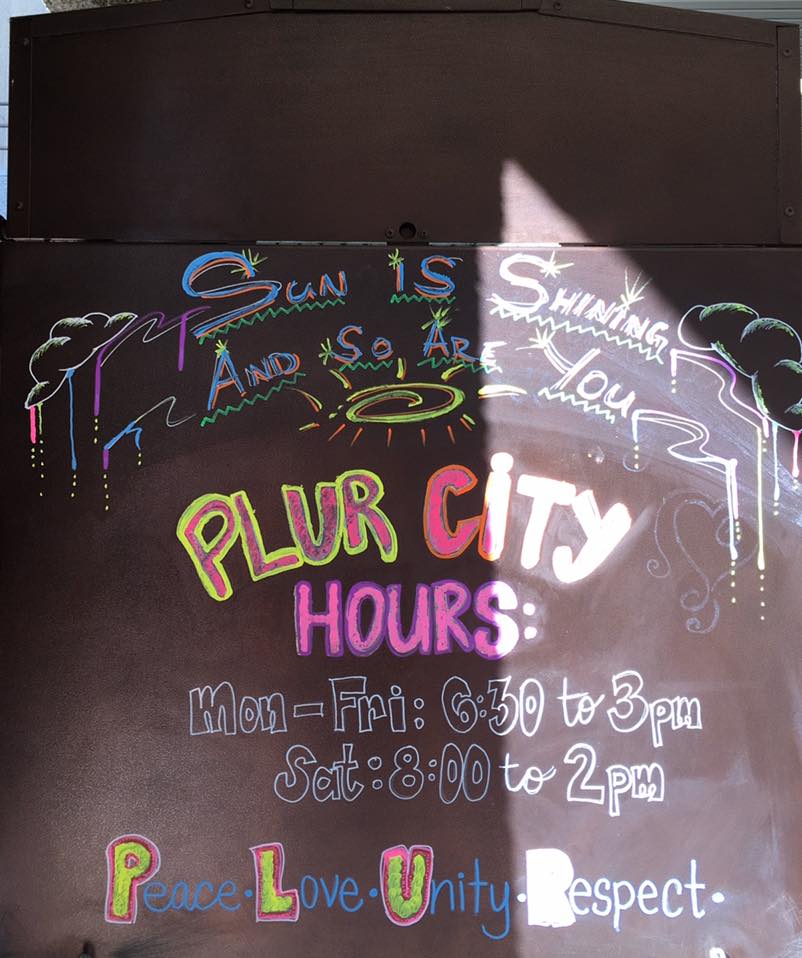 Sun is Shining
And So Are You
PLUR CiTY
HOURS:
Mon-Fri: 6:30 to 3pm
Sat: 8:00 to 2pm
Peace · Love · Unity · Respect ·